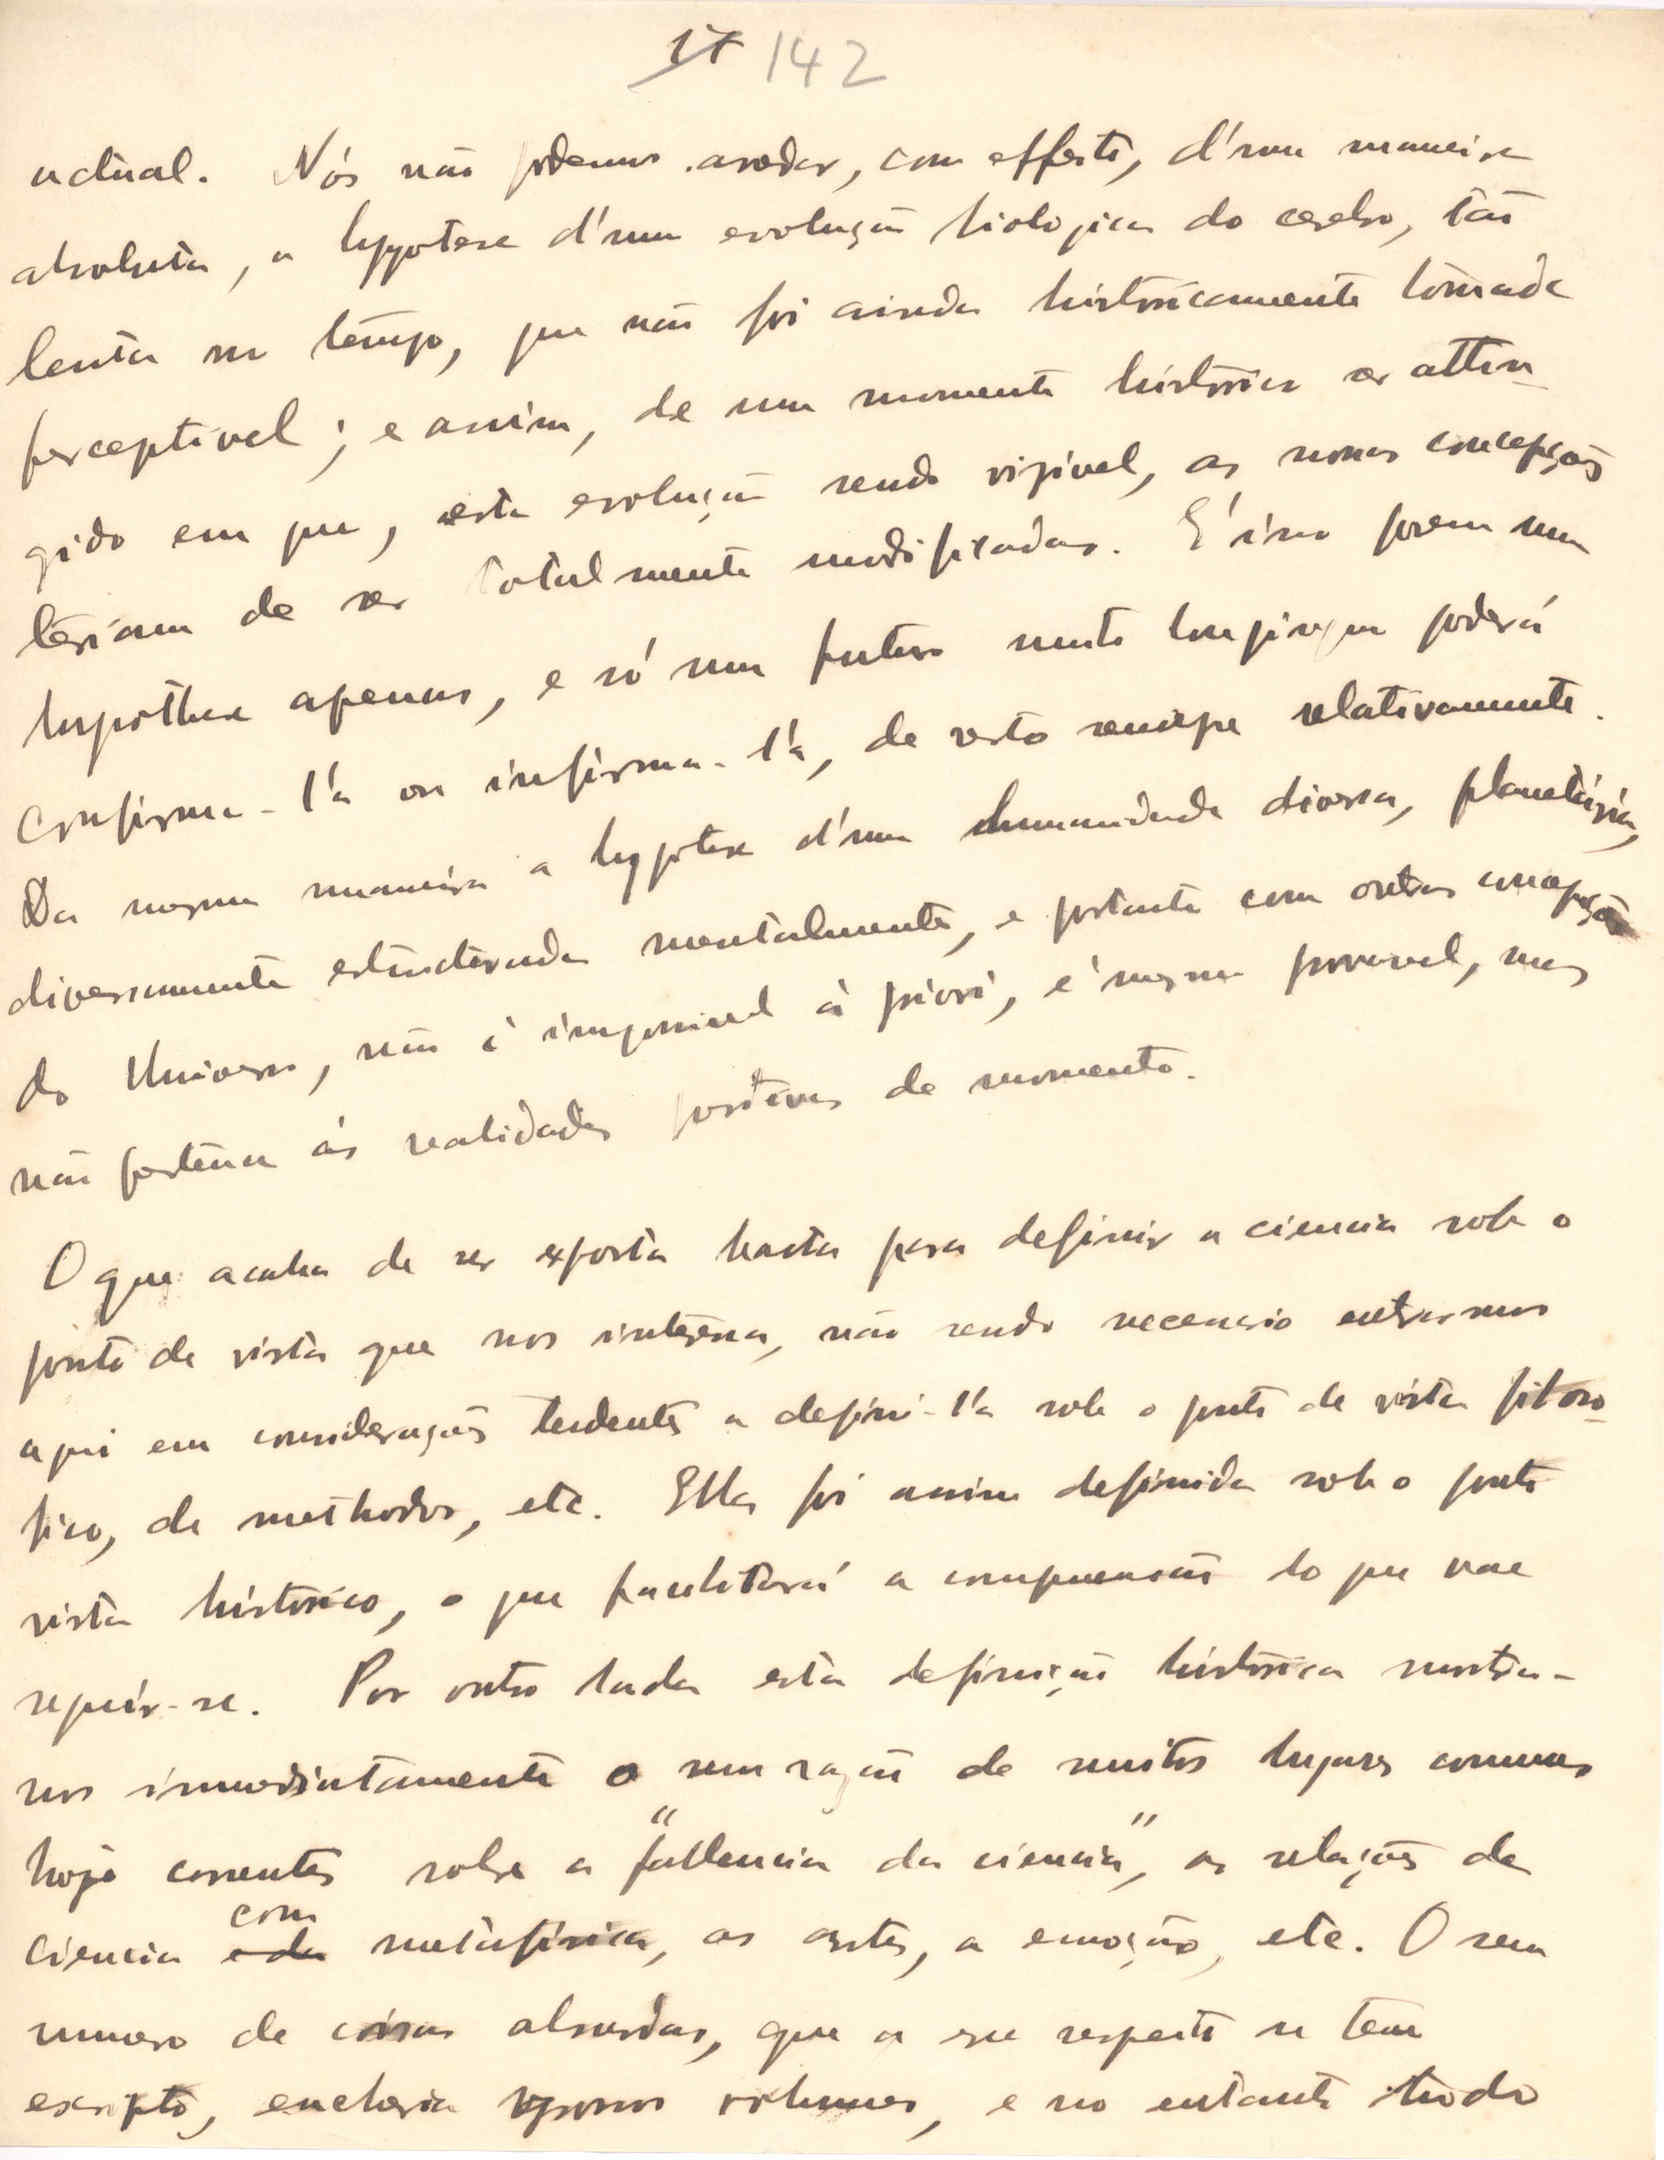 142
actual. Nós não podemos arredar, com effeito, d'uma maneira
absoluta, a hypotese d'uma evolução biologica do cerebro, tão
lenta no tempo, que não foi ainda historicamente tornada
perceptivel; e assim, de um momento historico se attin-
gido em que, esta evolução sendo visivel, as nossas concepções
teriam de ser totalmente modificadas. E' isso porem uma
hypothese apenas, e só um futuro muito longinquo poderá
confirma-l'a ou infirma-l'a, de resto sempre relativamente.
Da mesma maneira a hypotese d'uma humanidade diversa, planetária,
diversamente estructurada mentalmente, e portanto com outras concepções
do Universo, não é impossivel à priori, é mesmo provavel, mas
não pertence ás realidades positivas de momento.
O que acaba de ser exposto basta para definir a ciencia sob o
ponto de vista que nos interessa, não sendo necessario entrarmos
aqui em considerações tendentes a defini-l'a sob o ponto de vista filoso-
fico, de methodos, etc. Ella foi assim definida sob o ponto
vista historico, o que facilitará a comprehensão do que vae
seguir-se. Por outro lado esta definição historica mostra-
nos immediatamente a sem razão de muitos lugares communs
hoje correntes sobre a "fallencia da ciencia", as relações da
ciencia com metafisica, as artes, a emoção, etc. O sem
numero de coisas absurdas, que a esse respeito se tem
escripto, encheria grossos volumes, e no entanto tudo